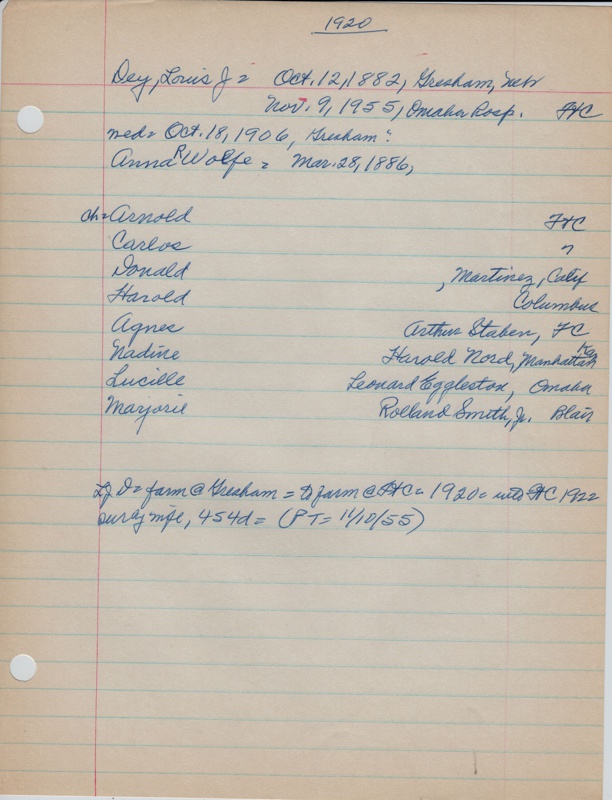 1920
Dey, Louis J = Oct. 12, 1882, Gresham, Neb
Nov. 9, 1955, Omaha Hosp. FtC
med = Oct. 18, 1906, Gresham "
Anna R Wolfe = Mar. 28, 1886,
ch = Arnold FtC
Carlos "
Donald , Martinez, Calif
Harold Columbus
Agnes Arthur Staben, FC
Nadine Harold Nord, Manhattan Kan
Lucille Leonard Eggleston, Omaha
Marjorie Rolland Smith, Jr. Blair
LJD = farm @ Gresham = to farm @ FtC = 1920 = into FtC 1922
surv by wife, 4s4d = (PT = 11/10/55)